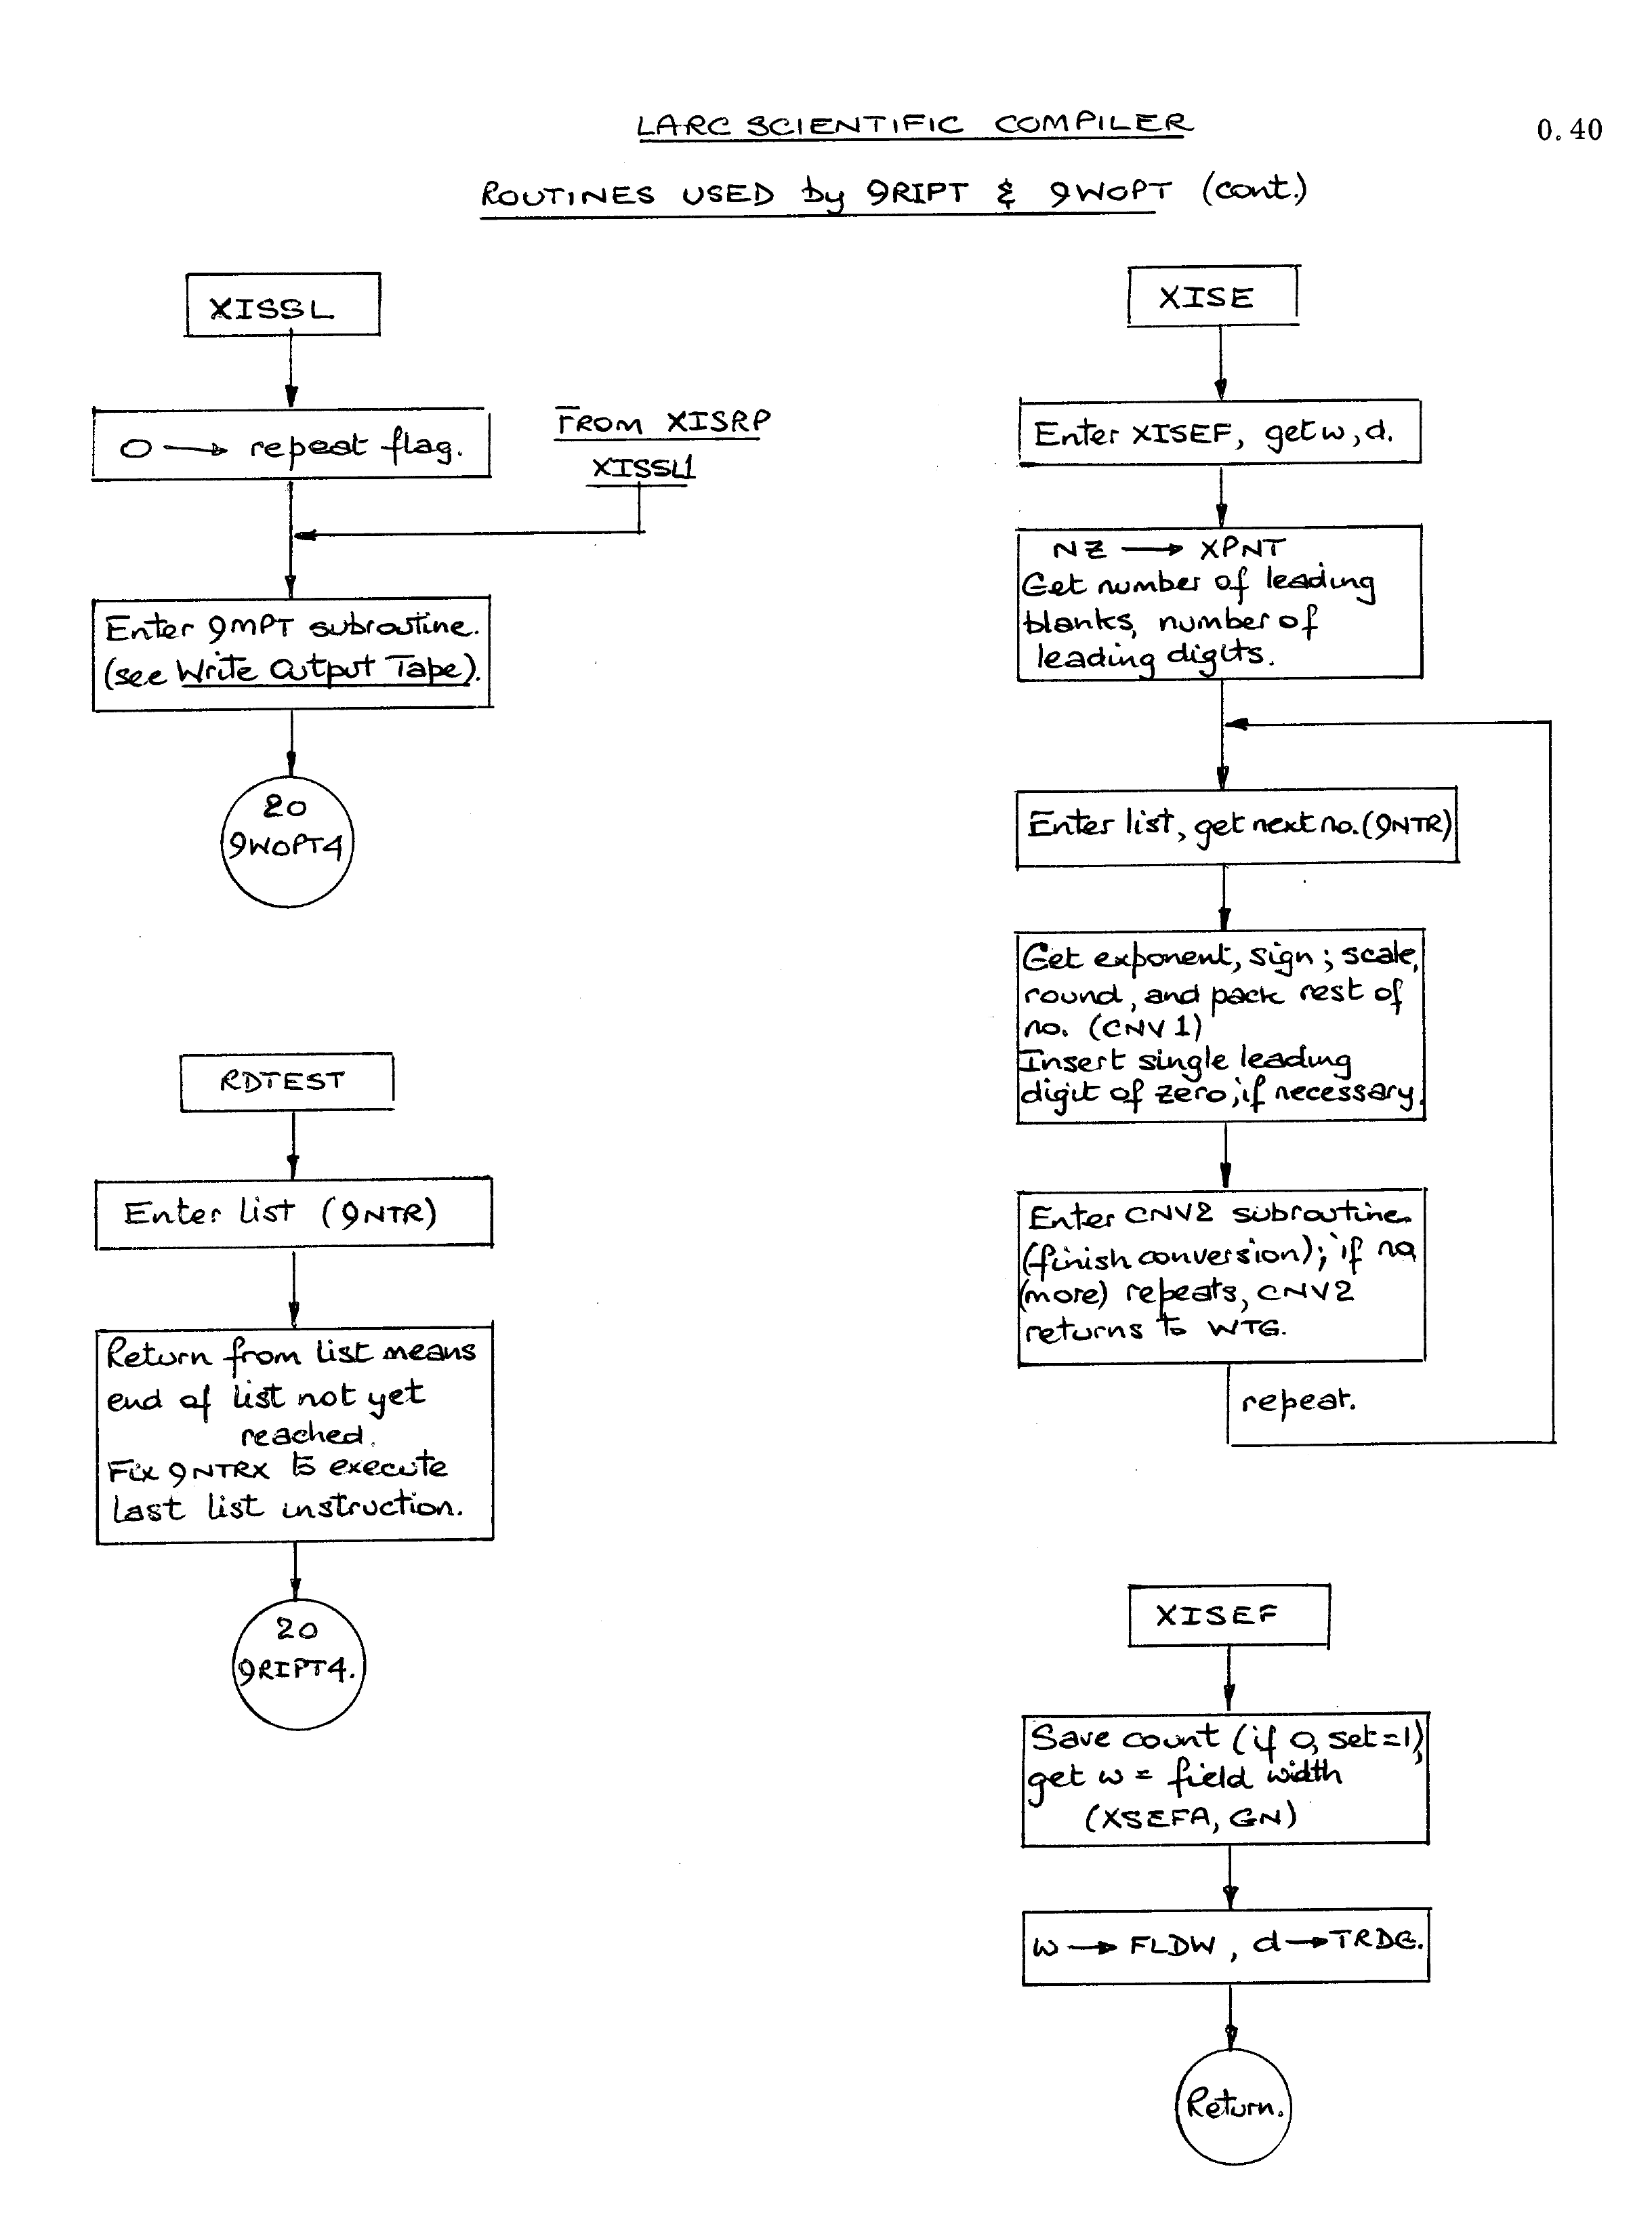 LARC SCIENTIFIC COMPILER
0.40
ROUTINES USED by 9RIPT & 9WOPT (cont.)
XISSL
0 → repeat flag.
FROM XISRP
XISSL1
Enter 9MPT subroutine.
(see Write Output Tape).
20
9WOPT4
RDTEST
Enter list (9NTR)
Return from list means
end of list not yet
reached.
Fix 9NTRX to execute
last list instruction.
20
9RIPT4.
XISE
Enter XISEF, get w, d.
NZ → XPNT
Get number of leading
blanks, number of
leading digits.
Enter list, get next no. (9NTR)
Get exponent, sign; scale,
round, and pack rest of
no. (CNV1)
Insert single leading
digit of zero, if necessary.
Enter CNV2 subroutine.
(finish conversion); if no
(more) repeats, CNV2
returns to WTG.
repeat.
XISEF
Save count (if 0, set = 1),
get w = field width
(XSEFA, GN)
w → FLDW, d → TRDG.
Return.